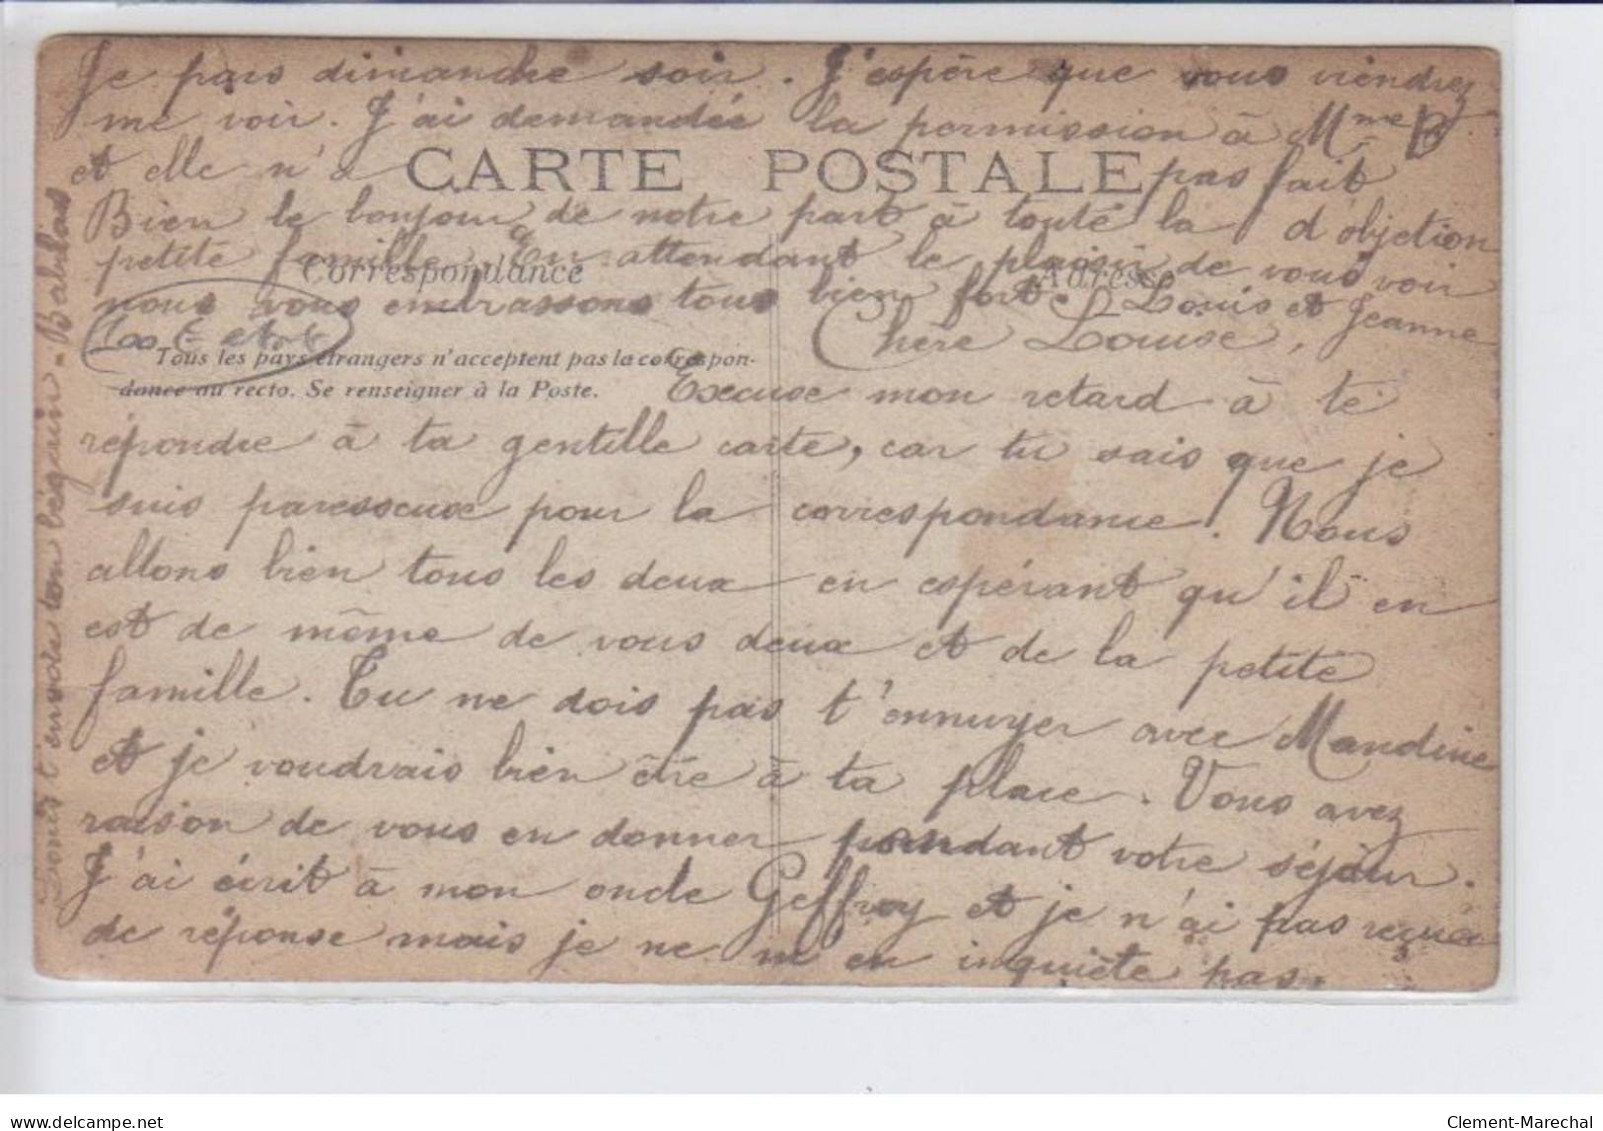 Je pars dimanche soir. J'espère que vous viendrez
me voir. J'ai demandée la permission à Mme B
et elle n'a pas fait
CARTE POSTALE
d'objetion
Bien le bonjour de notre part à toute la
petite famille. En attendant le plaisir de vous voir
Correspondance
Adresse
nous vous embrassons tous bien fort. Louis et Jeanne
Tous les pays étrangers n'acceptent pas la correspon-
dance au recto. Se renseigner à la Poste.
Chère Louise,
Excuse mon retard à te
répondre à ta gentille carte, car tu sais que je
suis paresseux pour la correspondance. Nous
allons bien tous les deux en espérant qu'il en
est de même de vous deux et de la petite
famille. Tu ne dois pas t'ennuyer avec Mandine
et je voudrais bien être à ta place. Vous avez
raison de vous en donner pendant votre séjour.
J'ai écrit à mon oncle Geffroy et je n'ai pas reçue
de réponse mais je ne m'en inquiète pas.
Louis t'envoie ton béguin - Babilas
delcampe.net
Clement-Marechal